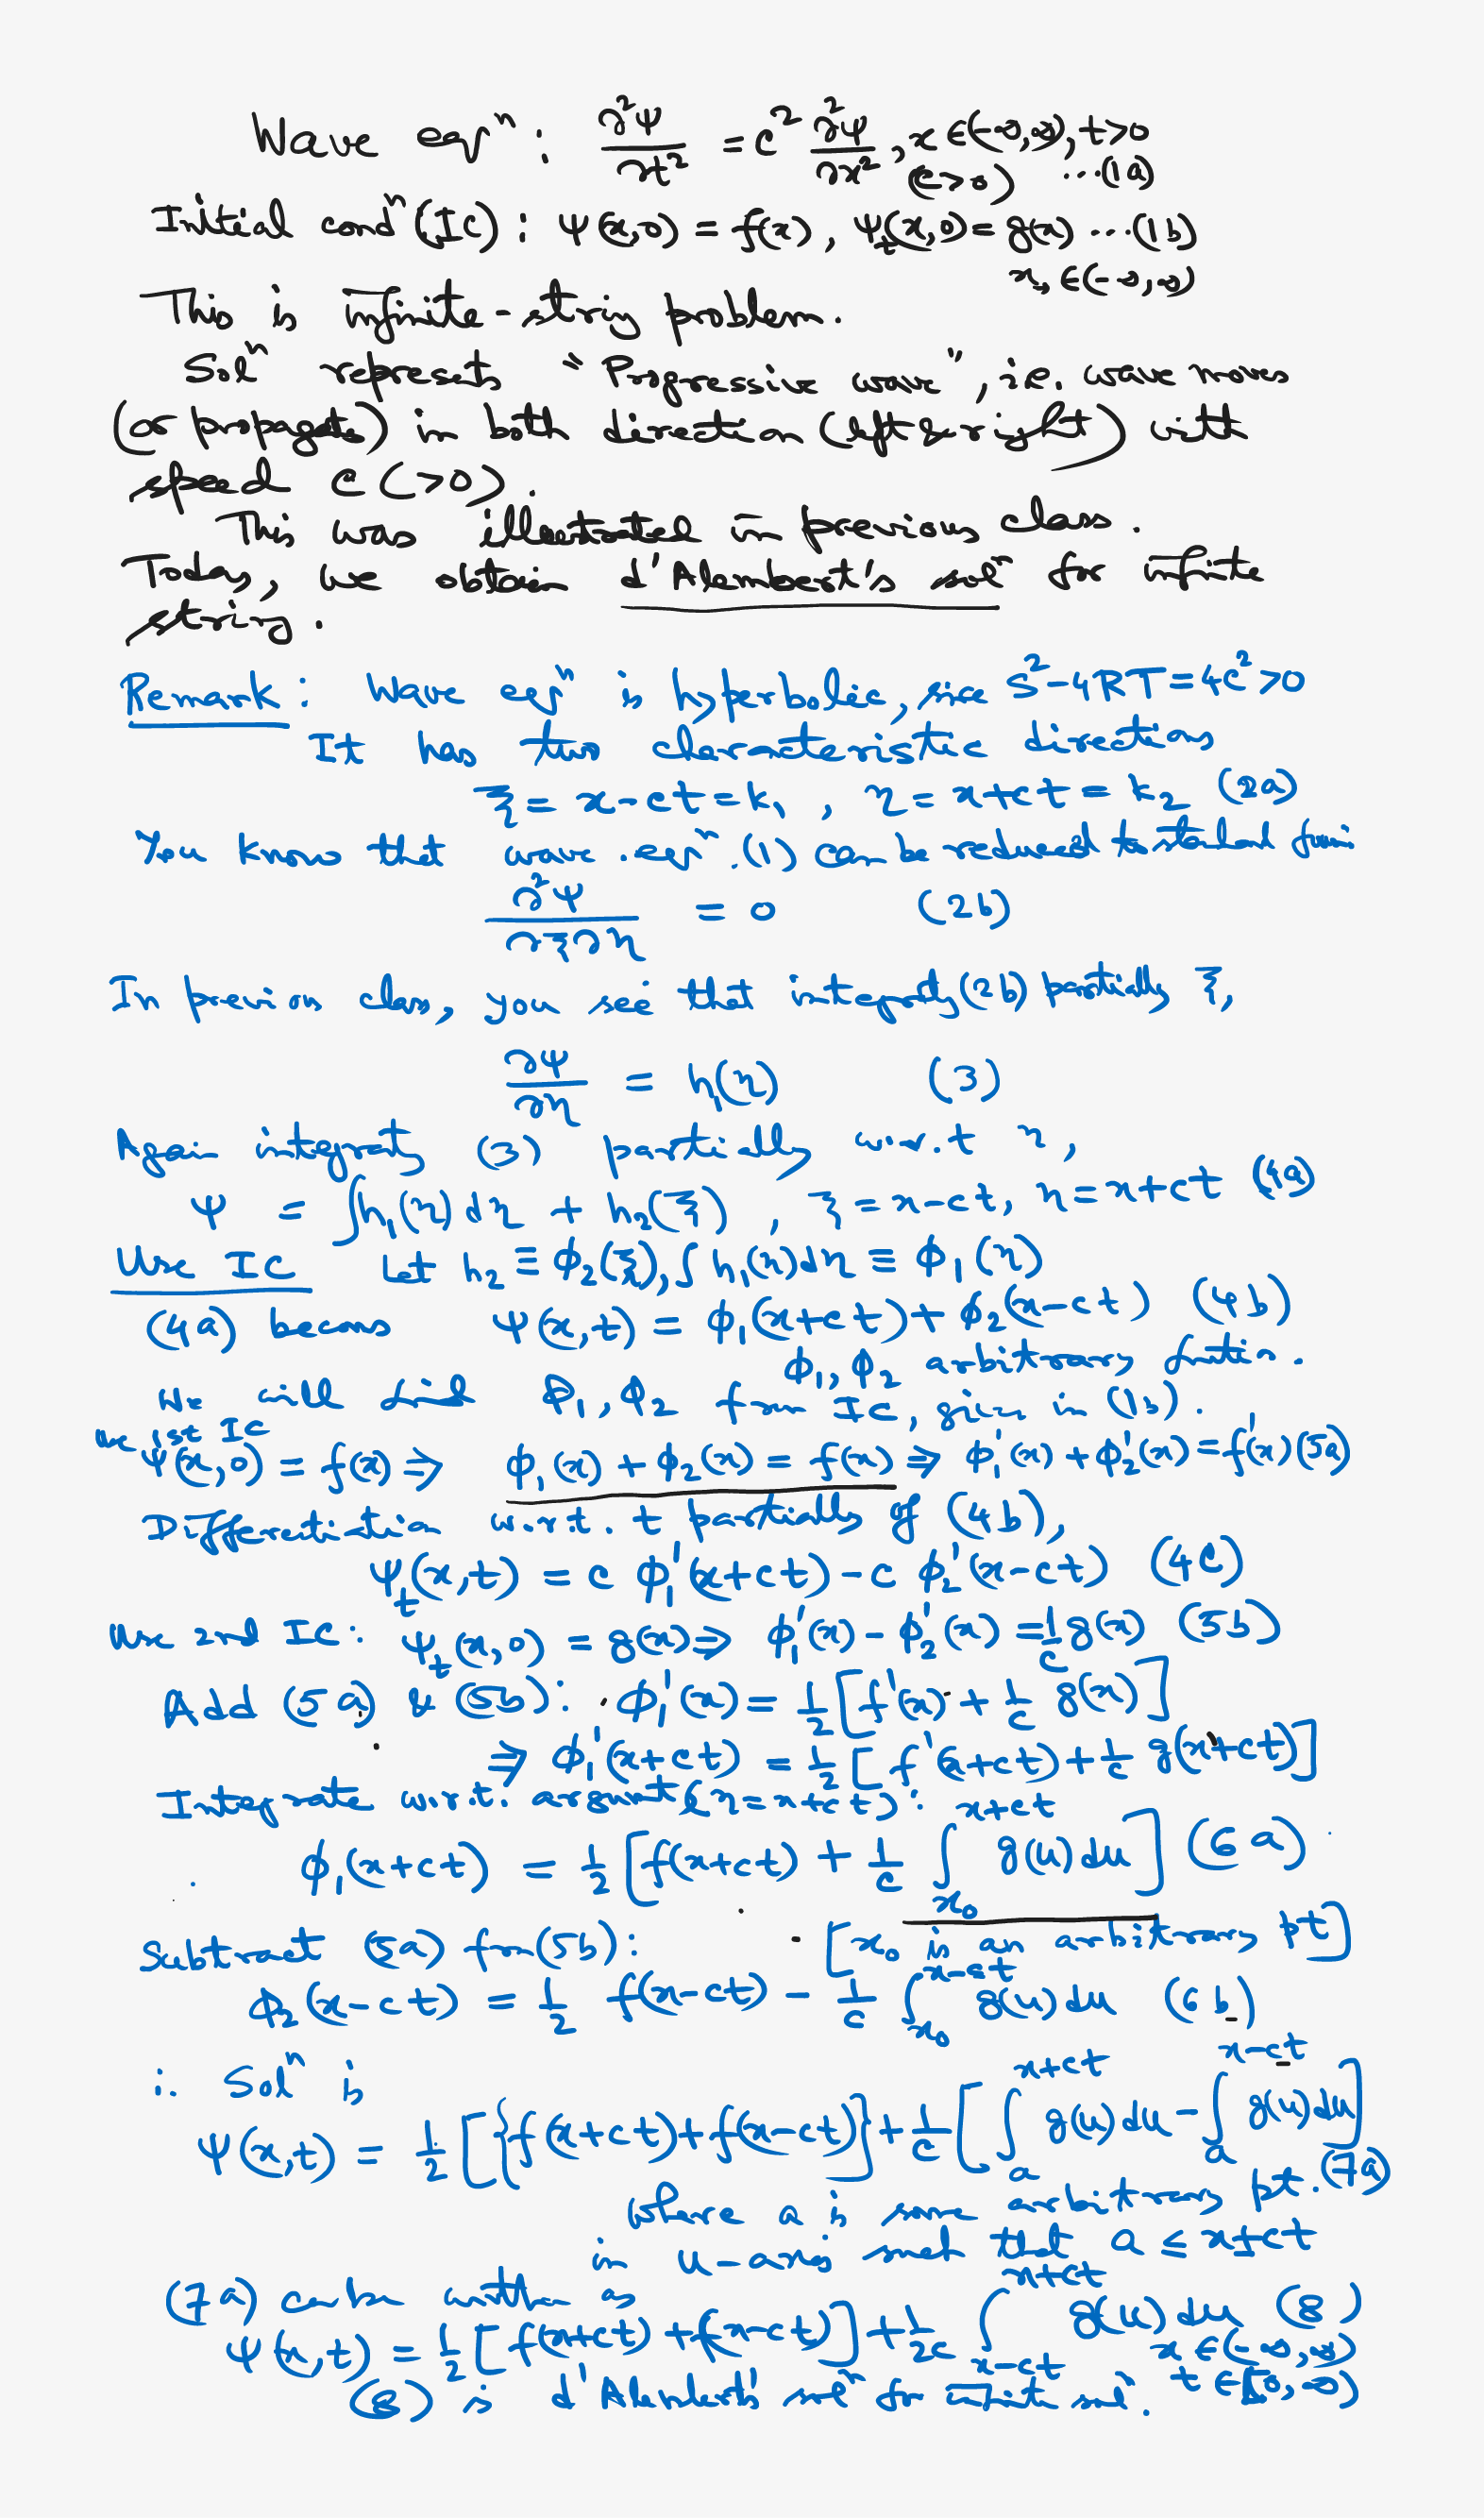 Wave eqⁿ : ∂²ψ/∂t² = c² ∂²ψ/∂x² , x ∈ (-∞,∞), t>0
(c>0) ...(1a)
Initial condⁿ (IC) : ψ(x,0) = f(x), ψ_t(x,0) = g(x) ...(1b)
x ∈ (-∞,∞)
This is infinite-string problem.
Solⁿ represents "Progressive wave", i.e. wave moves
(or propagates) in both direction (left & right) with
speed c (>0).
This was illustrated in previous class.
Today, we obtain d'Alembert's solⁿ for infinite
string.
Remark : Wave eqⁿ is hyperbolic, since S²-4RT = 4c² > 0
It has two characteristic directions
ξ = x-ct = k₁ , η = x+ct = k₂ (2a)
You know that wave eqⁿ. (1) can be reduced to standard form:
∂²ψ/∂ξ∂η = 0 (2b)
In previous class, you see that integrating (2b) partially ξ,
∂ψ/∂η = h₁(η) (3)
Again integrating (3) partially w.r.t η,
ψ = ∫h₁(η)dη + h₂(ξ) , ξ = x-ct, η = x+ct (4a)
Use IC Let h₂ ≡ φ₂(ξ), ∫h₁(η)dη ≡ φ₁(η)
(4a) becomes ψ(x,t) = φ₁(x+ct) + φ₂(x-ct) (4b)
φ₁, φ₂ arbitrary function.
We will find φ₁, φ₂ from IC, given in (1b).
Use 1st IC
ψ(x,0) = f(x) ⇒ φ₁(x) + φ₂(x) = f(x) ⇒ φ₁'(x) + φ₂'(x) = f'(x) (5a)
Differentiation w.r.t. t partially of (4b),
ψ_t(x,t) = c φ₁'(x+ct) - c φ₂'(x-ct) (4c)
Use 2nd IC: ψ_t(x,0) = g(x) ⇒ φ₁'(x) - φ₂'(x) = 1/c g(x) (5b)
Add (5a) & (5b): φ₁'(x) = 1/2 [f'(x) + 1/c g(x)]
⇒ φ₁'(x+ct) = 1/2 [f'(x+ct) + 1/c g(x+ct)]
Integrate w.r.t. argument (η = x+ct):
φ₁(x+ct) = 1/2 [f(x+ct) + 1/c ∫_{x₀}^{x+ct} g(u)du] (6a)
[x₀ is an arbitrary pt]
Subtract (5a) from (5b):
φ₂(x-ct) = 1/2 f(x-ct) - 1/c ∫_{x₀}^{x-ct} g(u)du (6b)
∴ Solⁿ is
ψ(x,t) = 1/2 [{f(x+ct) + f(x-ct)} + 1/c [∫_a^{x+ct} g(u)du - ∫_a^{x-ct} g(u)du] (7a)
where a is some arbitrary pt.
in u-axis such that a ≤ x±ct
(7a) can be written as
ψ(x,t) = 1/2 [f(x+ct) + f(x-ct)] + 1/2c ∫_{x-ct}^{x+ct} g(u)du (8)
x ∈ (-∞,∞)
(8) is d'Alembert's solⁿ for infinite t ∈ [0,∞)